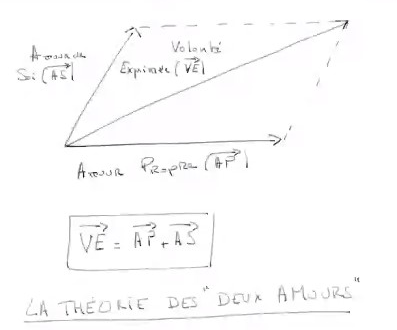 Amour de
Soi (AS)
Volonté
Exprimée (VE)
Amour Propre (AP)
VE = AP + AS
LA THÉORIE DES "DEUX AMOURS"